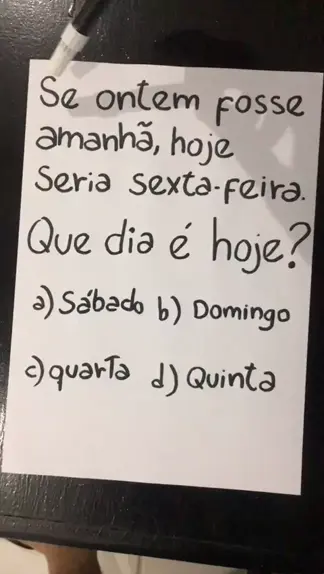 Se ontem fosse
amanhã, hoje
Seria sexta-feira.
Que dia é hoje?
a) Sábado b) Domingo
c) quarta d) Quinta